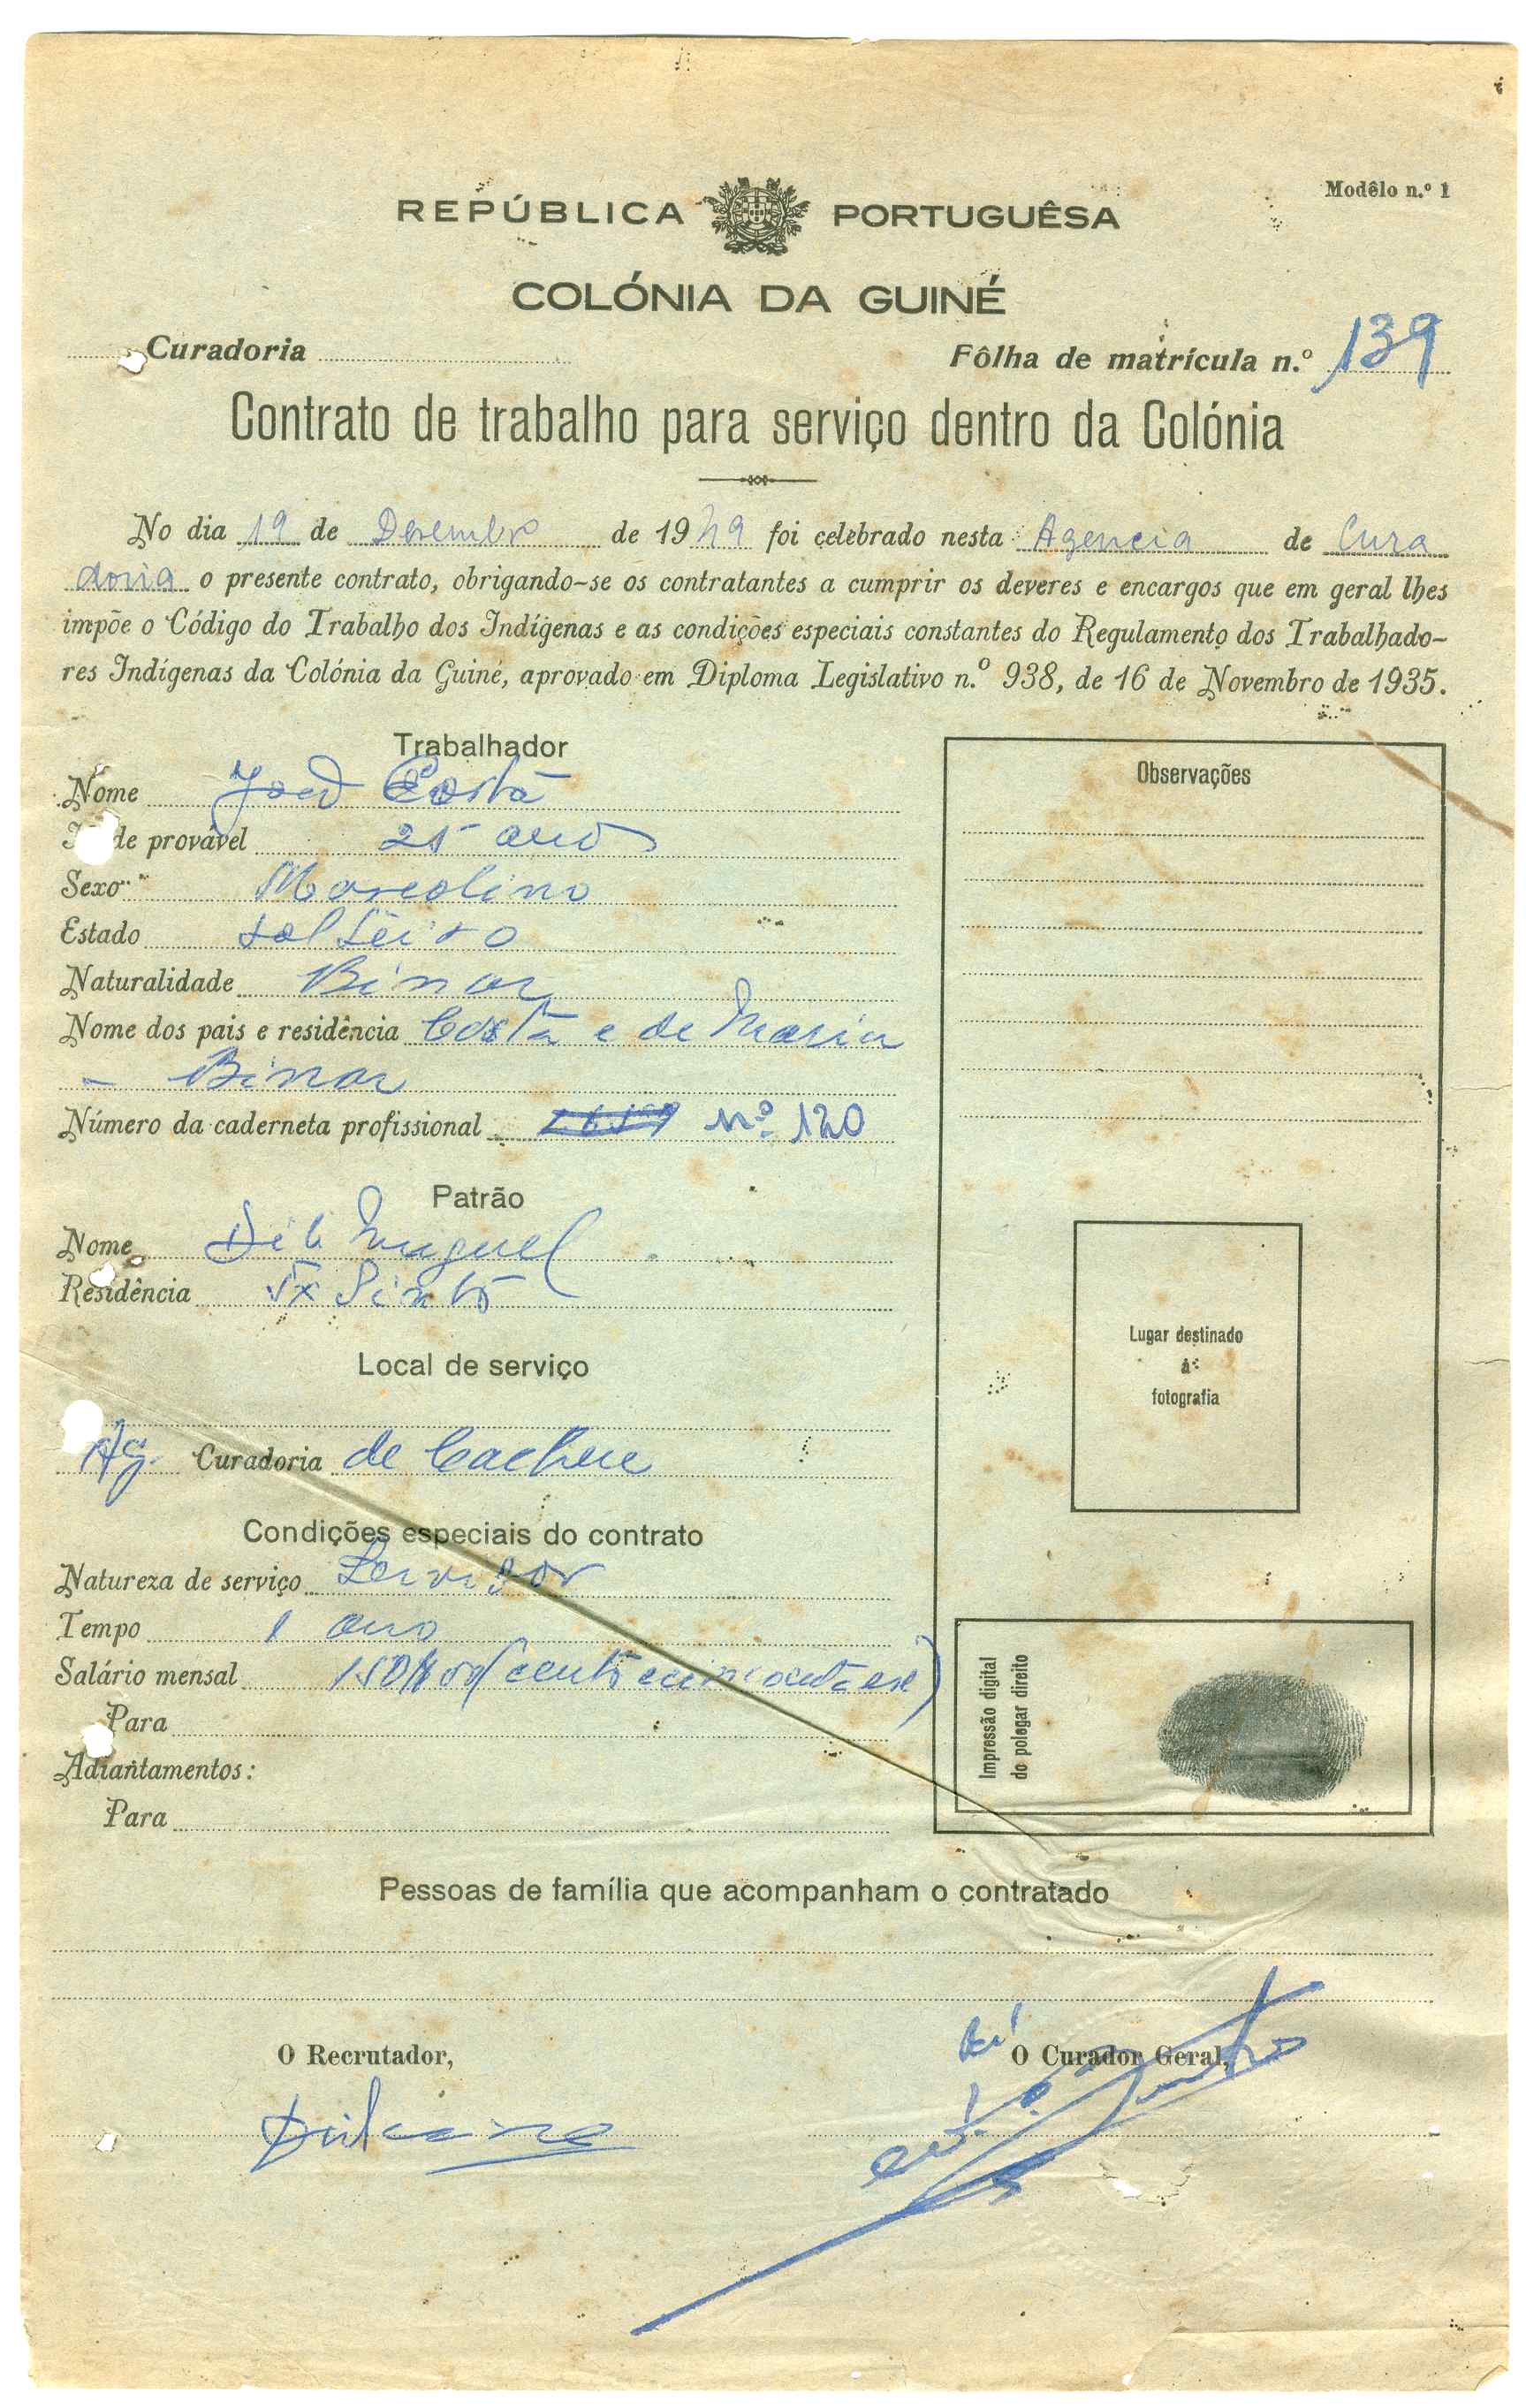 Modêlo n.º 1
REPÚBLICA PORTUGUÊSA
COLÓNIA DA GUINÉ
Curadoria
Fôlha de matrícula n.º 139
Contrato de trabalho para serviço dentro da Colónia
No dia 19 de Desembro de 1949 foi celebrado nesta Agencia de Cura
doria o presente contrato, obrigando-se os contratantes a cumprir os deveres e encargos que em geral lhes
impõe o Código do Trabalho dos Indígenas e as condições especiais constantes do Regulamento dos Trabalhado-
res Indígenas da Colónia da Guiné, aprovado em Diploma Legislativo n.º 938, de 16 de Novembro de 1935.
Trabalhador
Nome João Costa
Idade provável 25 anos
Sexo Mascolino
Estado solteiro
Naturalidade Binar
Nome dos pais e residência Costa e de Maria
- Binar
Número da caderneta profissional nº 120
Patrão
Nome Dib Miguel
Residência
Local de serviço
Ag. Curadoria de Cacheu
Condições especiais do contrato
Natureza de serviço Servisor
Tempo 1 ano
Salário mensal 150$00 (cento
Para
Adiantamentos:
Para
Observações
Lugar destinado
à
fotografia
Impressão digital
do polegar direito
Pessoas de família que acompanham o contratado
O Recrutador,
O Curador Geral,